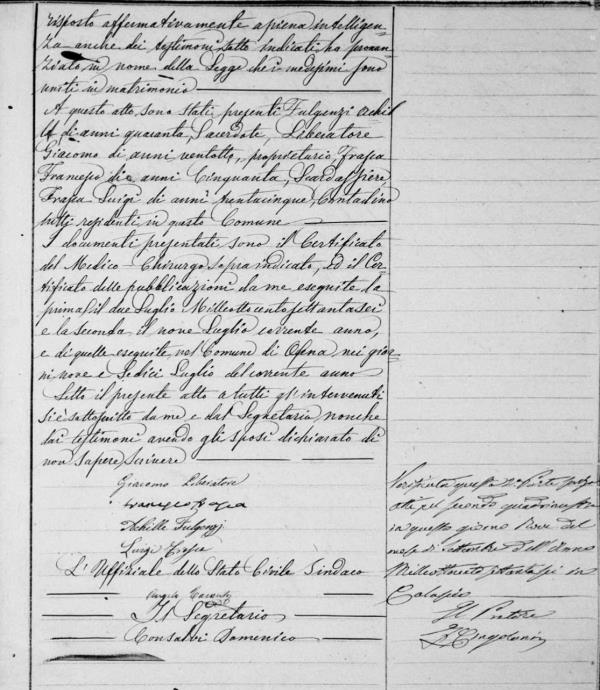 risposto affermativamente a piena intelligen-
za anche dei testimoni sotto indicati ha pronun
ziato in nome della Legge che i medesimi sono
uniti in matrimonio
A questo atto sono stati presenti Fulgenzi Achil
le di anni quaranta, Sacerdote, Liberatore
Giacomo di anni ventotto, proprietario, Frasca
Francesco di anni Cinquanta, Scardassiere,
Frasca Luigi di anni trentacinque, Contadino
tutti residenti in questo Comune
I documenti presentati sono il Certificato
del Medico-Chirurgo sopra indicato, ed il Cer-
tificato delle pubblicazioni da me eseguite la
prima il due Luglio Milleottocentosettantasei
e la seconda il nove Luglio corrente anno,
e di quelle eseguite nel Comune di Ofena nei gior-
ni nove e Sedici Luglio del corrente anno
Letto il presente atto a tutti gl'intervenuti
si è sottoscritto da me e dal Segretario nonche
dai testimoni avendo gli sposi dichiarato di
non sapere scrivere
Giacomo Liberatore
Francesco Frasca
Achille Fulgenzi
Luigi Frasca
L'Uffiziale dello Stato Civile Sindaco
Angelo
Il Segretario
Consalvi Domenico
Verificata questa
pel secondo quadrimestre
in questo giorno nove del
mese di Settembre dell'Anno
Milleottocento settantasei in
Calascio
Il Pretore